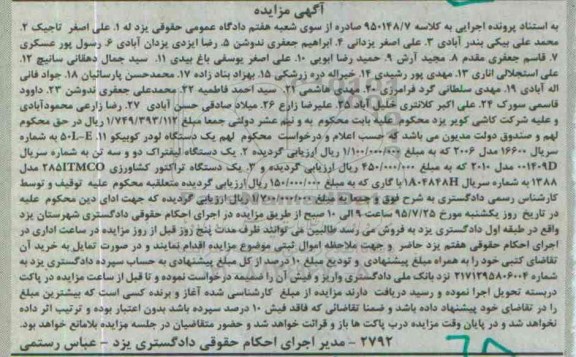 آگهی مزایده
به استناد پرونده اجرایی به کلاسه ۹۵۰۱۴۸/۷ صادره از سوی شعبه هفتم دادگاه عمومی حقوقی یزد له ۱. علی اصغر تاجیک ۲.
محمد علی بیکی بندر آبادی ۳. علی اصغر یزدانی ۴. ابراهیم جعفری ندوشن ۵. رضا ایزدی یزدان آبادی ۶. رسول پور عسکری
۷. قاسم جعفری مقدم ۸. مجید آرش ۹. حمید رضا ابویی ۱۰. علی اصغر یوسفی باغ بیدی ۱۱. سید جمال دهقانی سانیج ۱۲.
علی استجلالی اناری ۱۳. مهدی پور رشیدی ۱۴. خیراله دره زرشکی ۱۵. بهزاد بناد زاده ۱۷. محمدحسن پارسائیان ۱۸. جواد فانی
اله آبادی ۱۹. مهدی سلطانی گرد فرامرزی ۲۰. مهدی هاشمی ۲۱. سید احمد فاطمیه ۲۲. محمدعلی جعفری ندوشن ۲۳. داوود
قاسمی سورک ۲۴. علی اکبر کلانتری خلیل آباد ۲۵. علیرضا زارع ۲۶. میلاد صادقی حسن آبادی ۲۷. رضا زارعی محمودآبادی
و علیه شرکت کاشی کویر یزد محکوم علیه بابت محکوم به و نیم عشر دولتی جمعا مبلغ ۱/۷۴۹/۳۹۳/۱۱۲ ریال در حق محکوم
لهم و صندوق دولت مدیون می باشد که حسب اعلام و درخواست محکوم لهم یک دستگاه لودر کوبیکو ۱۱. ۵۰L-E به شماره
سریال ۱۶۶۰۰ مدل ۲۰۰۶ که به مبلغ ۱/۱۰۰/۰۰۰/۰۰۰ ریال ارزیابی گردیده ۲. یک دستگاه لیفتراک دو و سه تن به شماره سریال
۰۰۱۴۰۹D مدل ۲۰۱۰ که به مبلغ ۴۵۰/۰۰۰/۰۰۰ ریال ارزیابی گردیده و ۳. یک دستگاه تراکتور کشاورزی ۲۸۵ITMCO مدل
۱۳۸۸ به شماره سریال ۱۸۰۴۸۴۸H با گاری که به مبلغ ۱۵۰/۰۰۰/۰۰۰ ریال ارزیابی گردیده متعلقبه محکوم علیه توقیف و توسط
کارشناس رسمی دادگستری به شرح فوق و جمعا به مبلغ ۱/۷۰۰/۰۰۰/۰۰۰ ریال ارزیابی گردیده که جهت ادای دین محکوم علیه
در تاریخ روز یکشنبه مورخ ۹۵/۷/۲۵ ساعت ۹ الی ۱۰ صبح از طریق مزایده در اجرای احکام حقوقی دادگستری شهرستان یزد
واقع در طبقه اول دادگستری یزد به فروش می رسد طالبین می توانند ظرف مدت پنج روز قبل از روز مزایده در ساعت اداری در
اجرای احکام حقوقی هفتم یزد حاضر و جهت ملاحظه اموال ثبتی موضوع مزایده اقدام نمایند و در صورت تمایل به خرید آن
تقاضای کتبی خود را به همراه مبلغ پیشنهادی و تودیع مبلغ ۱۰ درصد از کل مبلغ پیشنهادی به حساب سپرده دادگستری یزد به
شماره ۲۱۷۱۲۹۵۸۰۶۰۰۴ نزد بانک ملی دادگستری واریز و فیش آن را ضمیمه درخواست نموده و تا قبل از ساعت مزایده در پاکت
دربسته تحویل اجرا نموده و رسید دریافت دارند مزایده از مبلغ کارشناسی شده آغاز و برنده کسی است که بیشترین مبلغ
را در تقاضای خود پیشنهاد داده باشد و ضمنا تقاضائی که فاقد فیش ۱۰ درصد سپرده باشد بدون اعتبار بوده و ترتیب اثر داده
نخواهد شد و در پایان وقت مزایده درب پاکت ها باز و قرائت خواهد شد و حضور متقاضیان در جلسه مزایده بلامانع خواهد بود.
۲۷۹۲ - مدیر اجرای احکام حقوقی دادگستری یزد - عباس رستمی